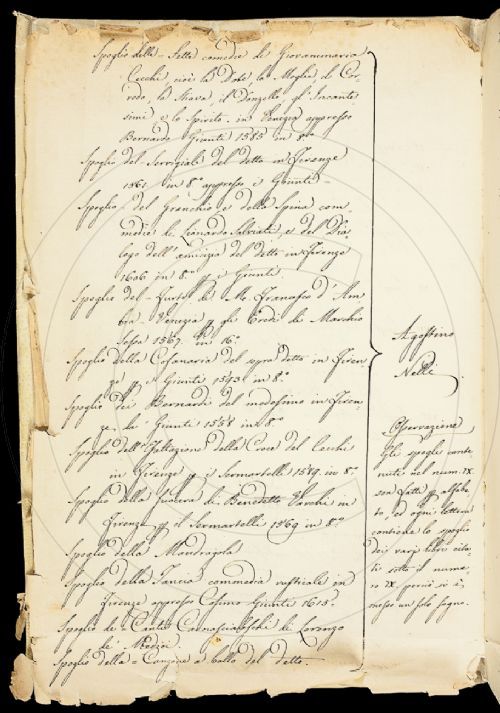 Spoglio delle Sette comedie di Giovanmaria
Cecchi, cioè la Dote, la Moglie, il Cor-
redo, la Stiava, il Donzello, gl'Incante-
simi, e lo Spirito. in Venezia appresso
Bernardo Giunti 1585 in 8.º
Spoglio del Servigiale del detto in Firenze
1561 in 8.º appresso i Giunti.
Spoglio del Granchio e della Spina com-
medie di Lionardo Salviati, e del Dia-
logo dell'amicizia del detto in Firenze
1606 in 8.º i Giunti.
Spoglio del Furto di M. Francesco d'Am-
bra. Venezia gli Eredi di Marchio
Sessa 1567. in 16.º
Spoglio della Cofanaria del sopradetto in Firen-
ze i Giunti 1593 in 8.º
Spoglio dei Bernardi del medesimo in Firen-
ze i Giunti in 8.º
Spoglio dell'Esaltazione della Croce del Cecchi
in Firenze il Sermartelli 1589. in 8.º
Spoglio della Suocera di Benedetto Varchi in
Firenze il Sermartelli 1569 in 8.º
Spoglio della Mandragola
Spoglio della Tancia commedia rusticale in
Firenze appresso Cosimo Giunti 1615.
Spoglio de' Canti Carnascialeschi di Lorenzo
de' Medici.
Spoglio della Canzone a ballo del detto.
Agostino
Nelli
Osservazione
Gli spogli conte-
nuti nel num. IX
son fatti alfabe-
to, ed ogni lettera
contiene lo spoglio
dei varj libri cita-
ti sotto il nume-
ro IX perciò si è
messo un solo segno.